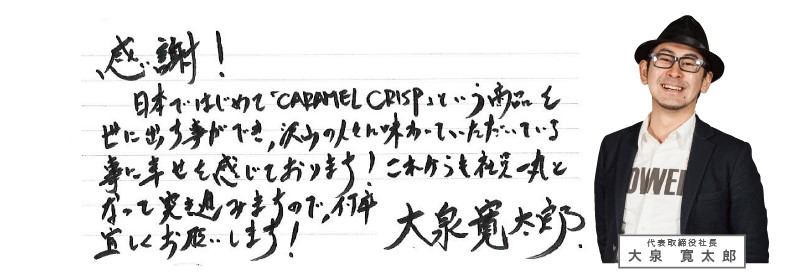 感謝!
日本ではじめて「CARAMEL CRISP」という商品を
世に出す事ができ、沢山の人々に味わっていただいている
事に幸せを感じております!これからも社員一丸と
なって突き進みますので、何卒
宜しくお願いします!
大泉寛太郎
OWER
代表取締役社長
大泉 寛太郎